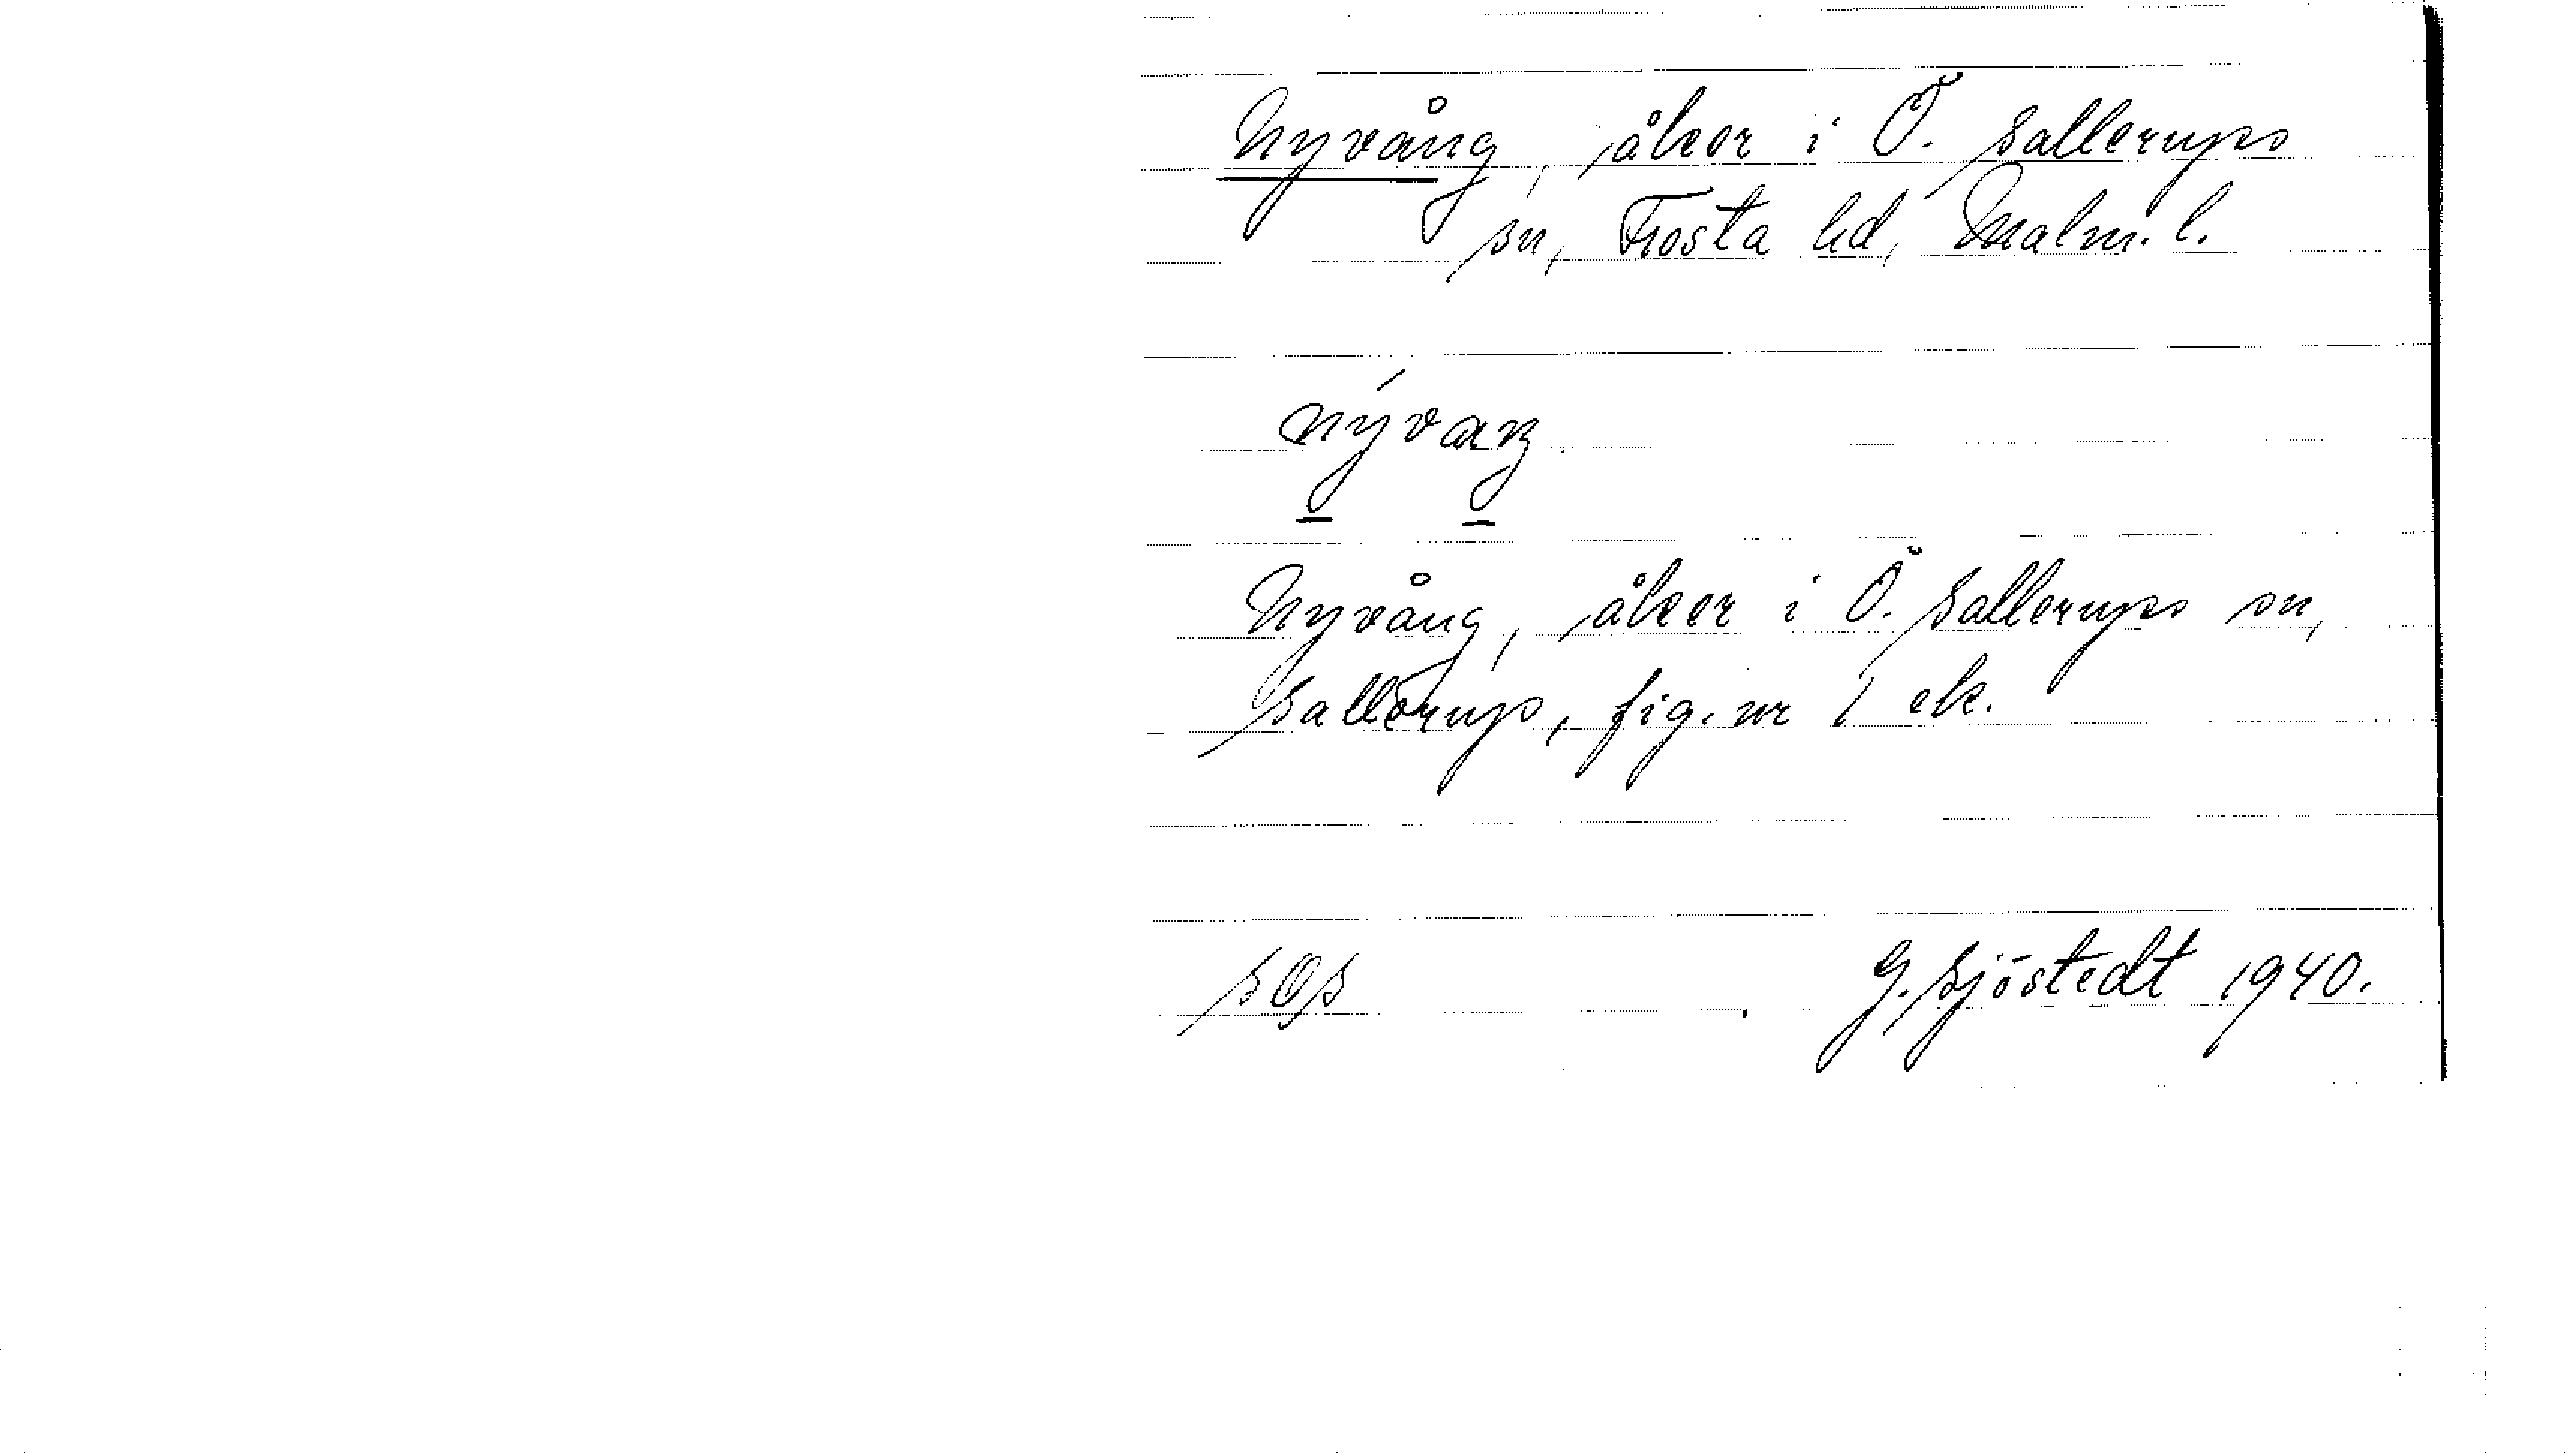 Nyvång, åker i Ö. Sallerups
sn, Frosta hd, Malm. l.
nývaŋ
Nyvång, åker i Ö. Sallerups sn,
Sallerup, fig. nr 1 ek.
SOS G. Sjöstedt 1940.